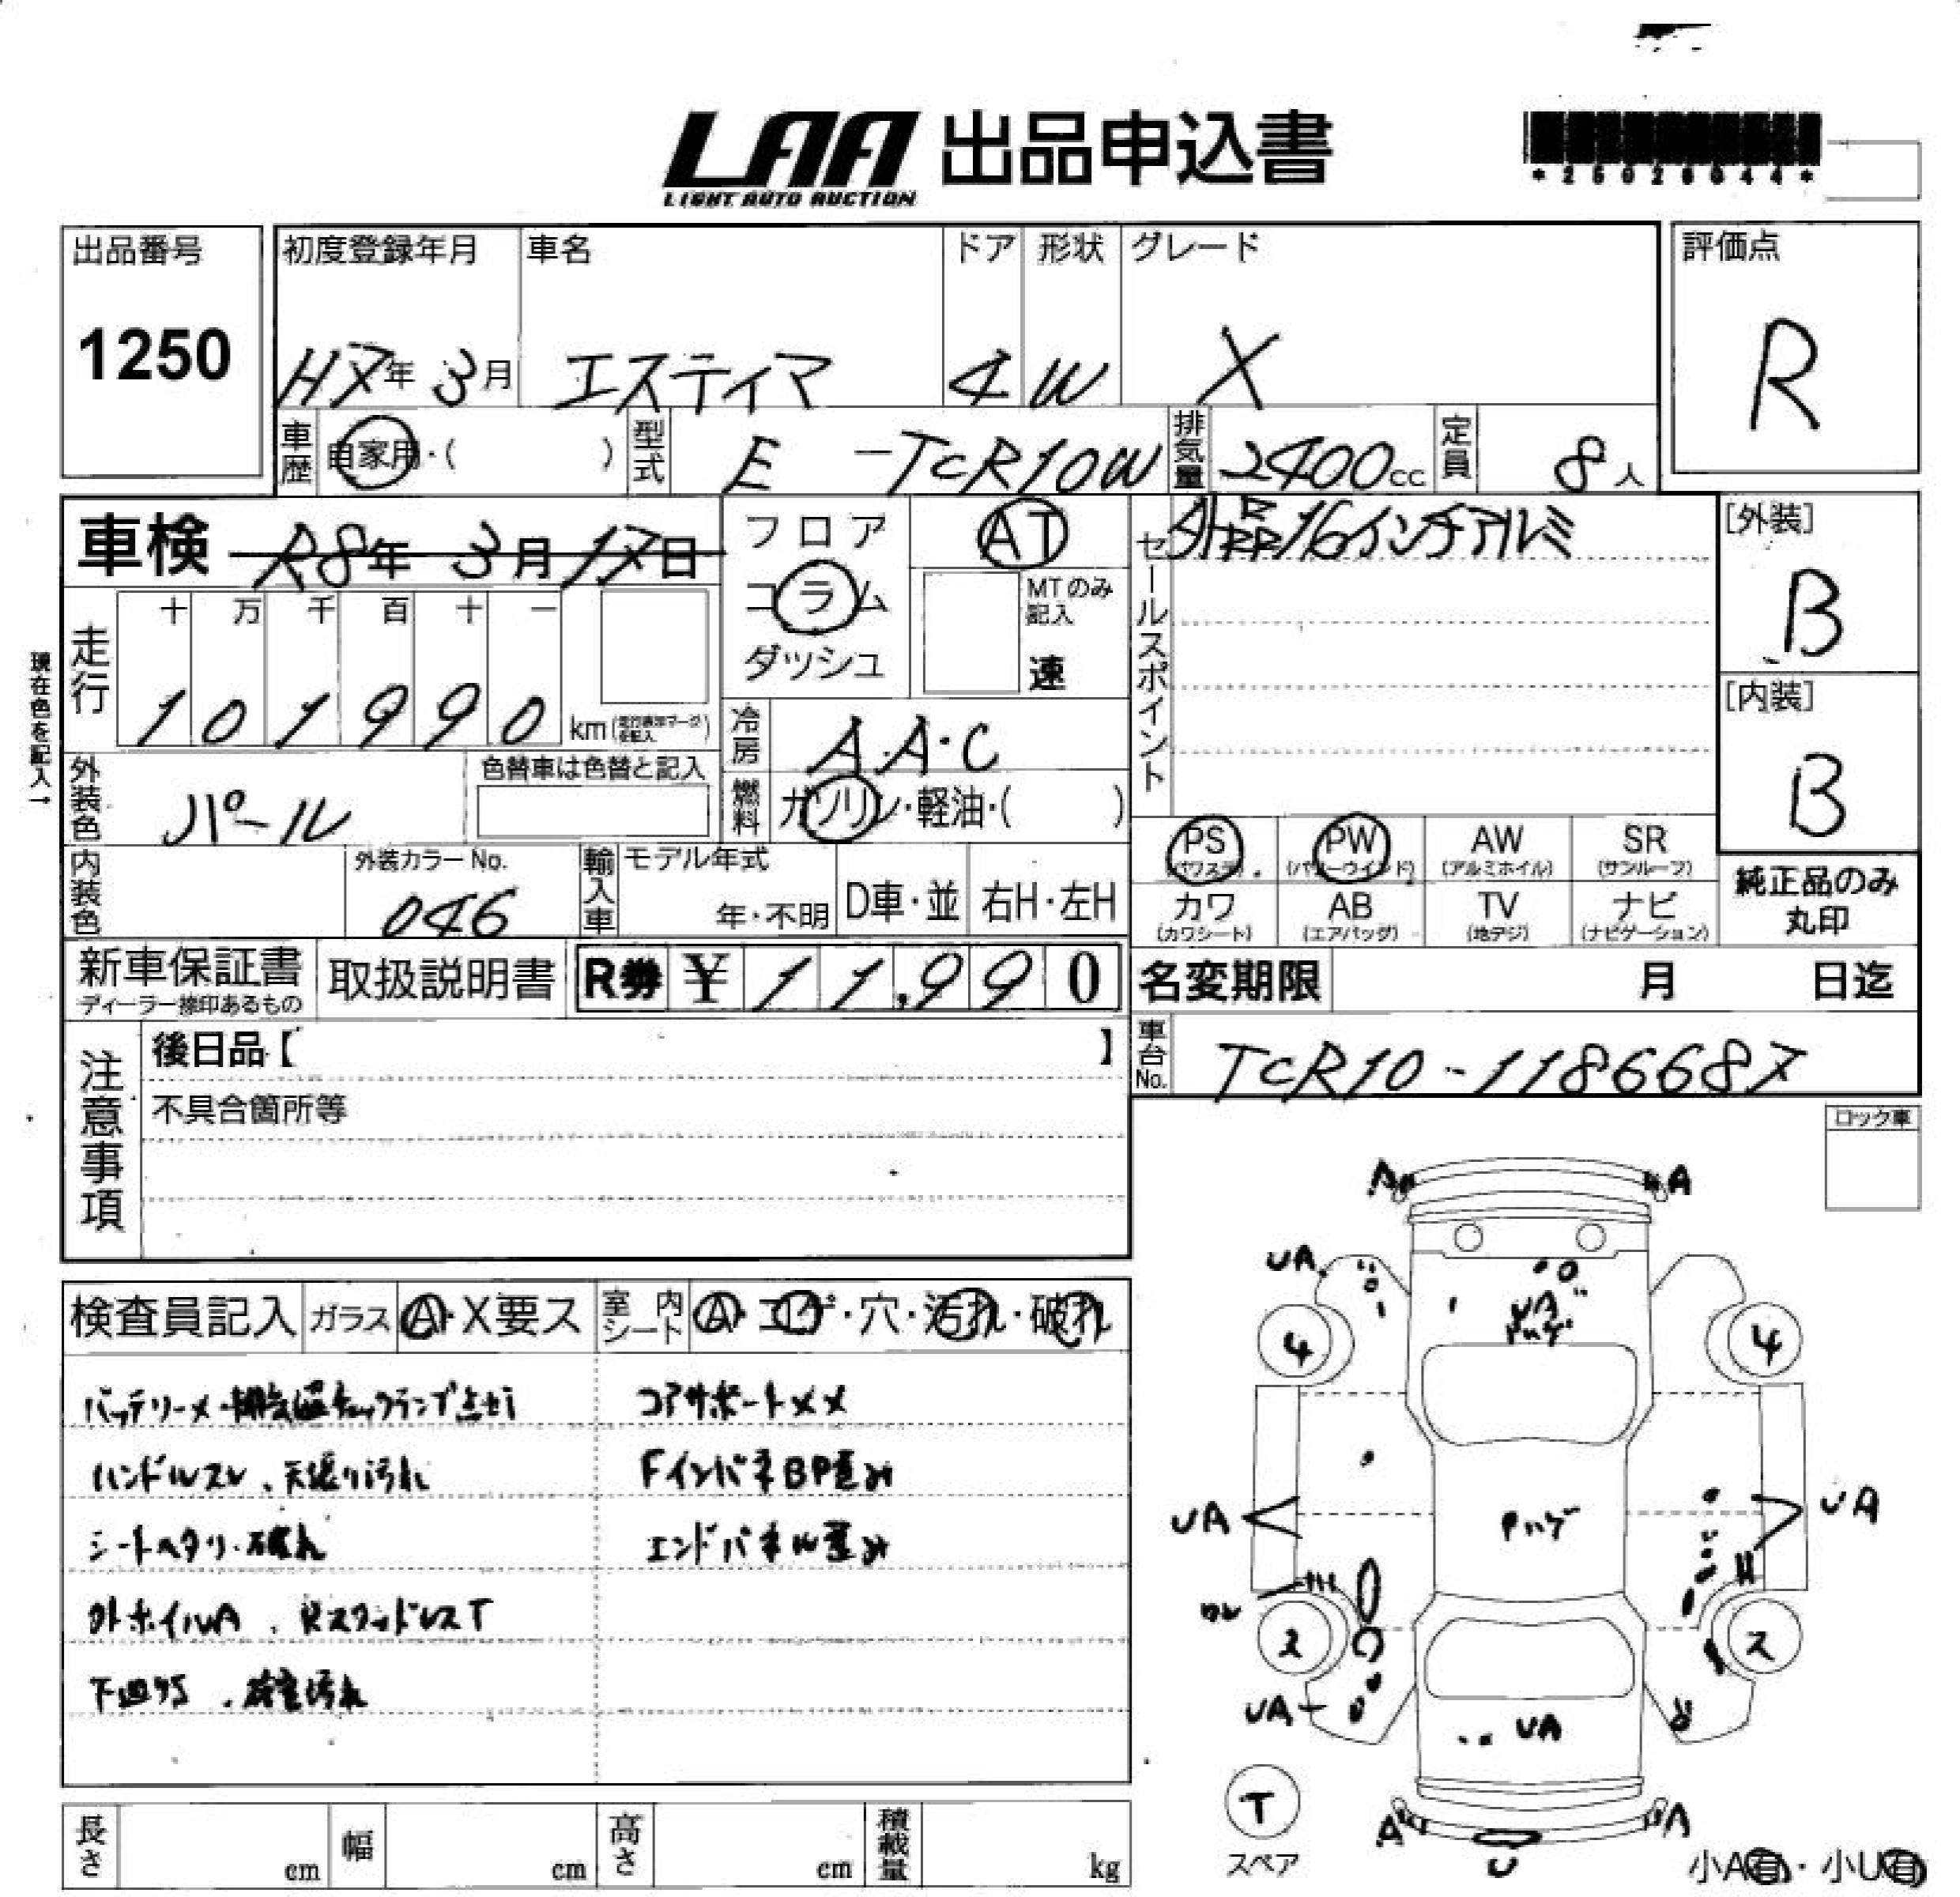 LAA 出品申込書
LIGHT AUTO AUCTION
出品番号 初度登録年月 車名 ドア 形状 グレード 評価点
1250 H7年 3月 エスティマ 4 W X R
車歴 自家用・( ) 型式 E -TCR10W 排気量 2400cc 定員 8人
車検 R8年 3月17日 フロア AT セールスポイント 外品16インチアルミ [外装]
コラム MTのみ記入 B
ダッシュ 速
走行 十 万 千 百 十 一
1 0 1 9 9 0 km
現在色を記入→
冷房 A.A.C [内装]
B
外装色 パール 色替車は色替と記入 燃料 ガソリン・軽油・( )
PS PW AW SR
(パワステ) (パワーウインド) (アルミホイル) (サンルーフ)
純正品のみ
丸印
内装色 外装カラーNo. 046 輸入車 モデル年式 年・不明 D車・並 右H・左H
カワ AB TV ナビ
(カワシート) (エアバッグ) (地デジ) (ナビゲーション)
新車保証書 取扱説明書 R券 ¥11,990 名変期限 月 日迄
ディーラー捺印あるもの
車台No. TCR10-1186687
注意事項 後日品【 】
不具合箇所等
ロック車
検査員記入 ガラス A・X要ス 室内シート A・コゲ・穴・汚れ・破れ
バッテリーメ・排気温チェックランプ点灯 コアサポート××
ハンドルスレ、天張り汚れ FインパネBP歪み
シートヘタリ・破れ エンドパネル歪み
外ホイルA、RスタッドレスT
下廻りS、荷室汚れ
A A
UA
UA
Pハゲ
4 4
UA Pハゲ UA
ワレ
2 2
UA UA
T
スペア
A A
U
小A有・小U有
長さ cm 幅 cm 高さ cm 積載量 kg